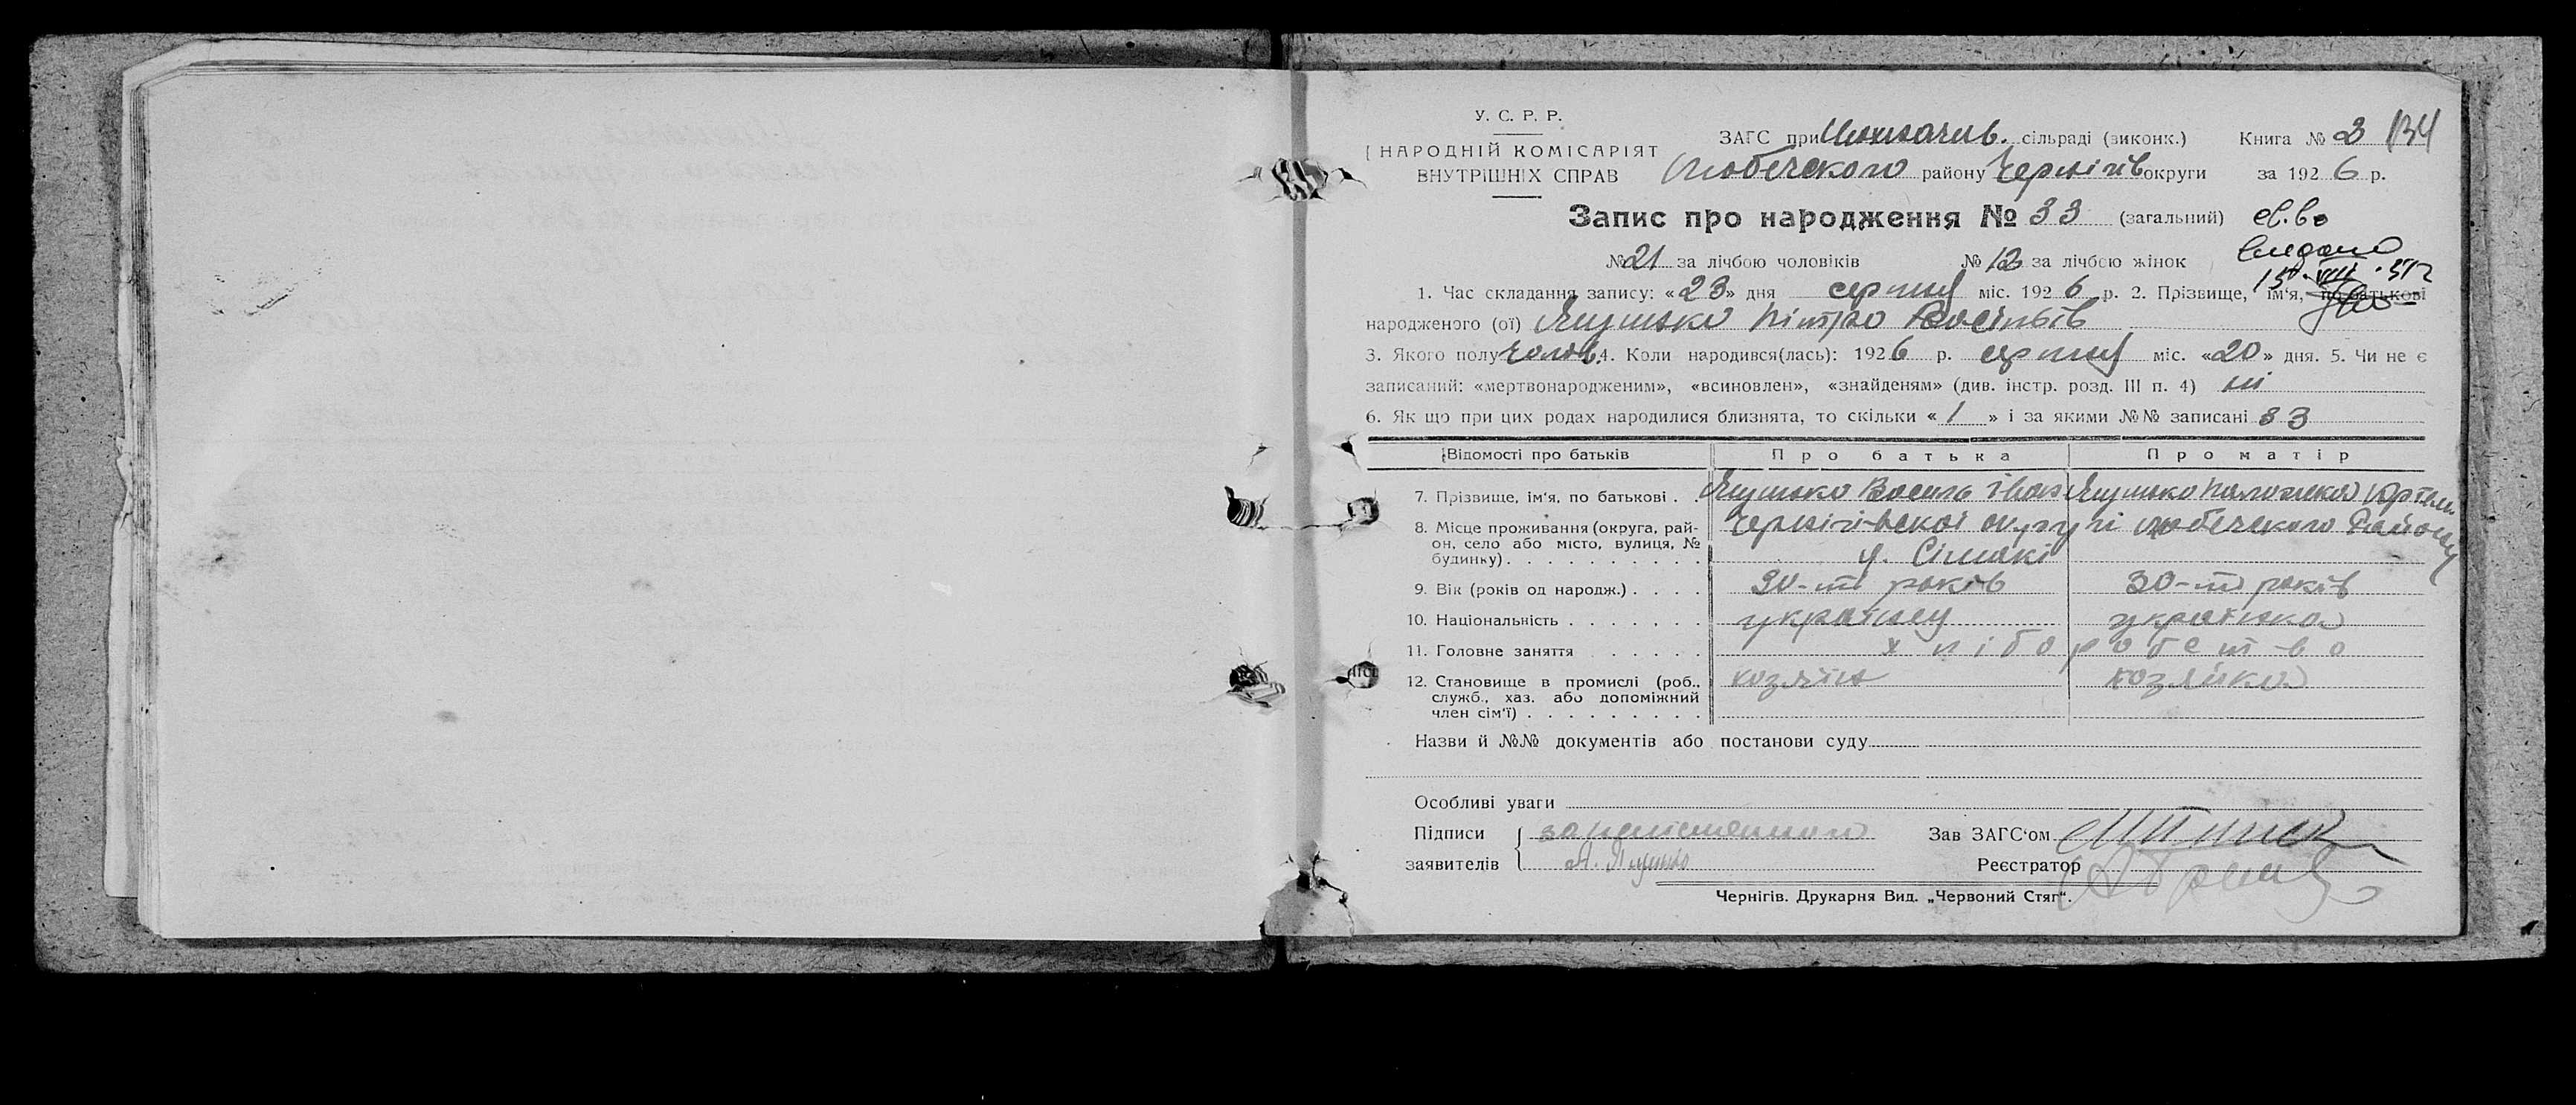 У. С. Р. Р.
НАРОДНІЙ КОМІСАРІЯТ
ВНУТРІШНІХ СПРАВ
ЗАГС при сільраді (виконк.)
Книга № 2 134
Любечского району Чернігів округи за 1926 р.
Запис про народження № 33 (загальний) св.во
видано
№ 21 за лічбою чоловіків № 12 за лічбою жінок
15.VIII.51г
1. Час складання запису: «23» дня серпня міс. 1926 р. 2. Прізвище, ім'я, по батькові
народженого (ої) Ящинко Пітро Васільів
3. Якого полу чолов. 4. Коли народився(лась): 1926 р. серпня міс. «20» дня. 5. Чи не є
записаний: «мертвонародженим», «всиновлен», «знайденям» (див. інстр. розд. III п. 4) ні
6. Як що при цих родах народилися близнята, то скільки «1» і за якими №№ записані 33
Відомості про батьків Про батька Про матір
7. Прізвище, ім'я, по батькові . Василь Іван
8. Місце проживання (округа, рай- Чернігівскоі округі любечского Району
он, село або місто, вулиця, №
будинку) . . . . . . . . . . Сімакі
9. Вік (років од народж.) . . . . 30-ть років 30-ть років
10. Національність . . . . . . . українец українка
11. Головне заняття . . . . . хліборобство
12. Становище в промислі (роб., хозяїн хозяйка
служб., хаз. або допоміжний
член сім'ї) . . . . . . . . .
Назви й №№ документів або постанови суду
Особливі уваги
Підписи
заявителів
Зав ЗАГС'ом
Реєстратор
Чернігів. Друкарня Вид. „Червоний Стяг“.